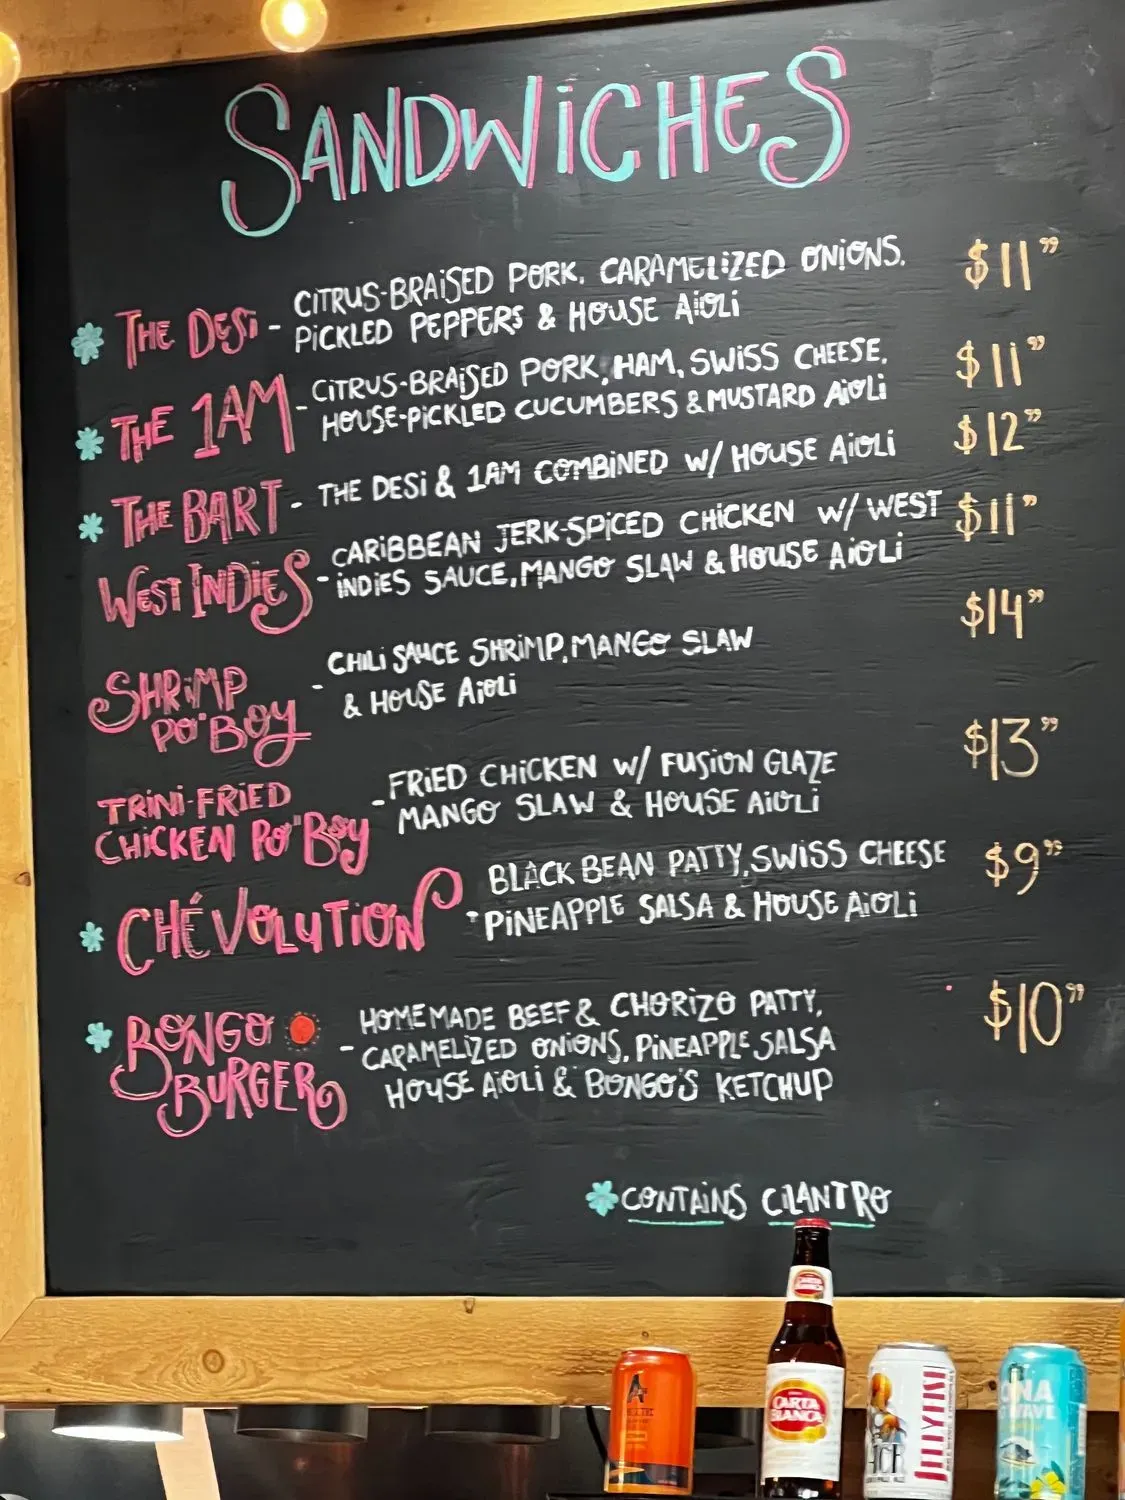 SANDWICHES
THE DESi - CITRUS-BRAISED PORK, CARAMELIZED ONIONS, $11.99
PICKLED PEPPERS & HOUSE AIOLI
THE 1AM - CITRUS-BRAISED PORK, HAM, SWISS CHEESE, $11.99
HOUSE-PICKLED CUCUMBERS & MUSTARD AIOLI
THE BART - THE DESI & 1AM COMBINED W/ HOUSE AIOLI $12.99
WEST INDIES - CARIBBEAN JERK-SPICED CHICKEN W/ WEST $11.99
INDIES SAUCE, MANGO SLAW & HOUSE AIOLI
SHRIMP PO'BOY - CHILI SAUCE SHRIMP, MANGO SLAW $14.99
& HOUSE AIOLI
TRINI-FRIED
CHICKEN PO'BOY - FRIED CHICKEN W/ FUSION GLAZE $13.99
MANGO SLAW & HOUSE AIOLI
CHÉVOLUTION - BLACK BEAN PATTY, SWISS CHEESE $9.95
PINEAPPLE SALSA & HOUSE AIOLI
BONGO BURGER - HOMEMADE BEEF & CHORIZO PATTY, $10.99
CARAMELIZED ONIONS, PINEAPPLE SALSA
HOUSE AIOLI & BONGO'S KETCHUP
CONTAINS CILANTRO
CARTA
BLANCA
JULLYIISI
WAVE